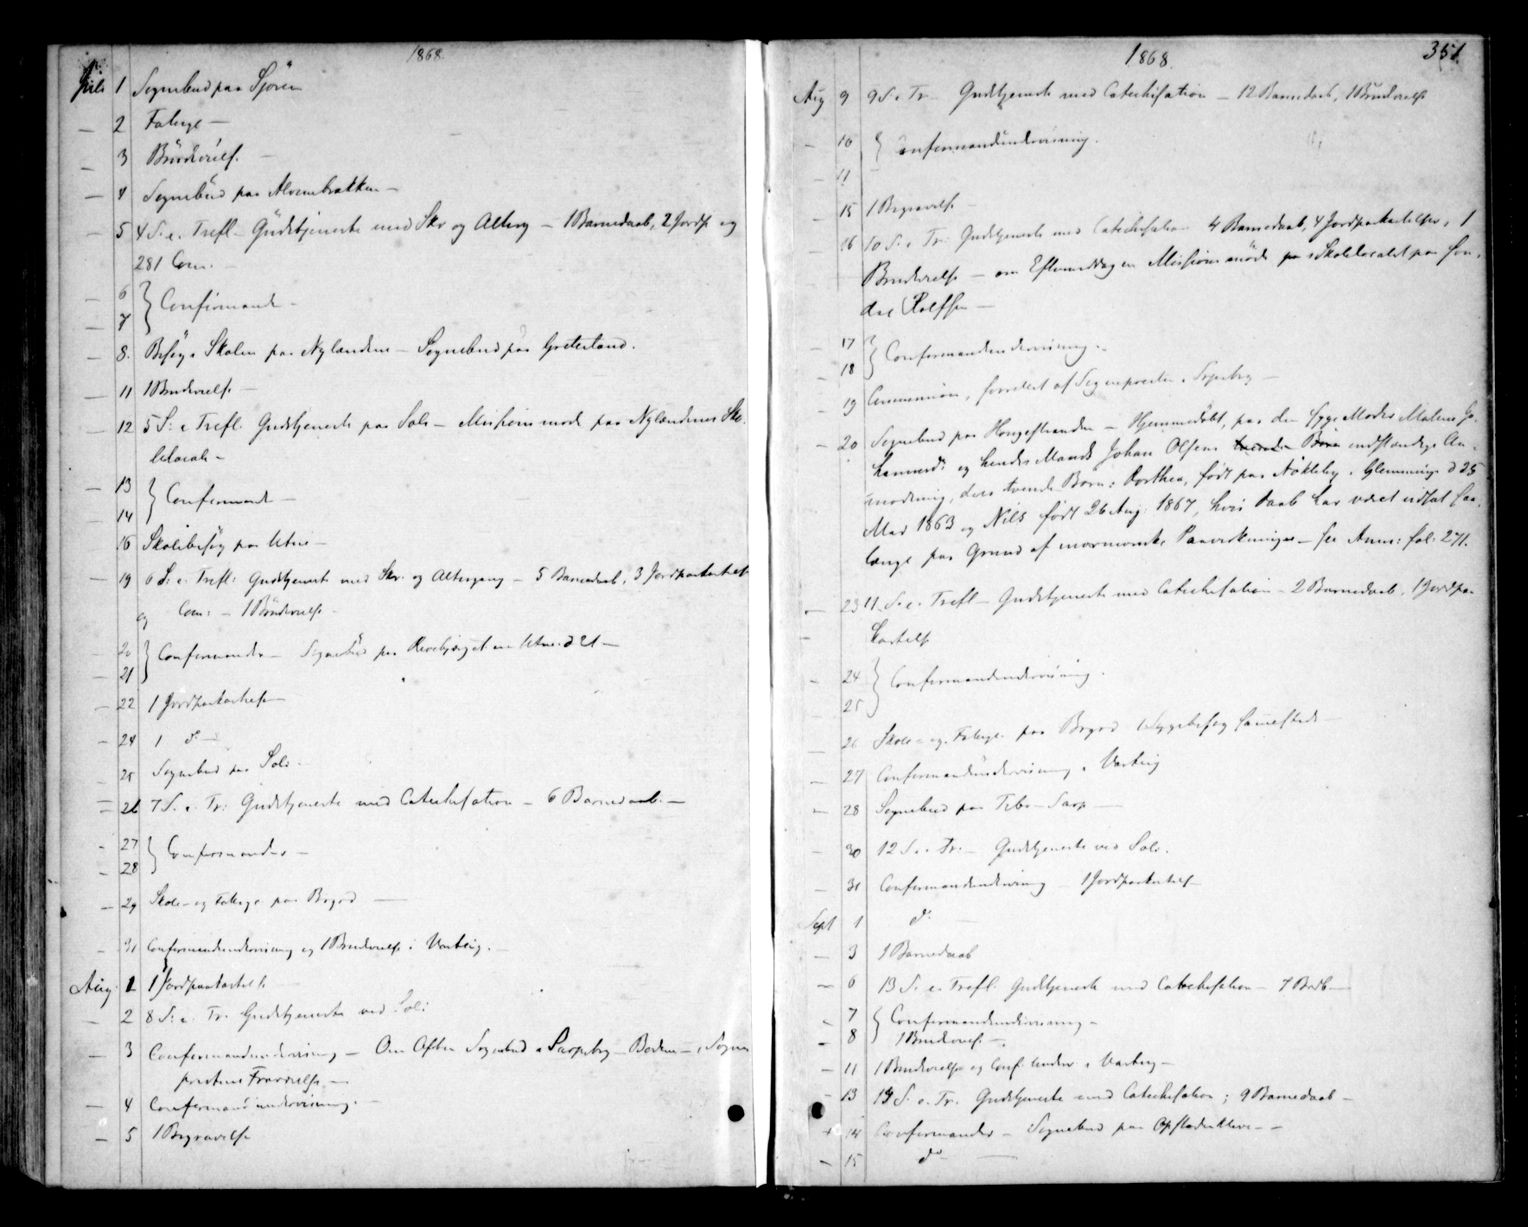 1868.
Juli 1 Sognebud paa Sjören
— 2 Fatige —
— 3 Brudeviels. —
— 4 Sognebud paa Alvimbrækken —
— 5 4 S. e. Trefl. Gudstjeneste med Skr og Alterg — 1 Barnedaab, 2 Jordp og
281 Com. —
— 6
— 7 } Confirmand —
— 8. Besög i Skolen paa Nylandene — Sognebud paa Greterland.
11 1 Brudevielse —
— 12 5 S: e Trefl. Gudstjeneste paa Soli — Missionsmöde paa Nylandenes Sko-
lelocale —
— 13
— 14 } Confirmand —
16 Skolebesög paa Utne —
— 19 6 S: e. Trefl: Gudstjeneste med Skr. og Altergang — 5 Barnedaab, 3 Jordpaakastelse
og Com: — 1 Brudevielse —
20
21 } Confirmander — Sognebud paa Utne d 21 —
— 22 1 Jordpaakastelse —
— 24 1 do —
— 25 Sognebud paa Soli —
— 26 7 S. e. Tr: Gudstjeneste med Catechisation — 6 Barnedaab. —
— 27
— 28 } Confirmander —
— 29 Skole- og Fatige paa Borgard —
— 31 Confirmandundervisning og 1 Brudevielse i Varteig. —
Aug. 1 1 Jordpaakastelse
— 2 8 S: e. Tr. Gudstjeneste ved Soli
— 3 Confirmandundervisning — Om Aften Sognebud i Sarpsborg — Boden — i Sogne
prestens Fraværelse —
— 4 Confirmandundervisning. —
— 5 1 Begravelse
1868. 351.
Aug 9 9 S. e Tr — Gudstjeneste med Catechisation — 12 Barnedaab, 1 Brudevielse
— 10
— 11 } Confirmandundervisning.
— 15 1 Begravelse —
— 16 10 S. e Tr: Gudstjeneste med Catechisation 4 Barnedaab, 4 Jordpaakastelser, 1
Brudevielse — om Eftermiddagen Missionsmöde i Skolelocalet paa
Rolfsen —
— 17
— 18 } Confirmandundervisning. —
— 19 Communion, forrettet af Sognepresten i Sarpsborg —
— 20 Sognebud paa Hongestranden — Hjemmedöbt, paa den syge Moders Malene Jo-
hannesd: og hendes Mands Johan Olsens indstændige An-
modning, deres tvende Börn: Dorthea, födt paa Nöttleby i Glemminge d 25
Mad 1863 og Nils födt 26 Aug. 1867, hvis Daab har været udsat saa
længe paa Grund af mormonske Paavirkninger — see Anm: fol. 271.
— 23 11. S. e. Trefl — Gudstjeneste med Catechisation — 2 Barnedaab, 1 Jordpaa-
kastelse
— 24
— 25 } Confirmandundervisning.
— 26 Skole- og Fatige paa Borgard Sygebesög sammesteds —
— 27 Confirmandundervisning i Varteig
— 28 Sognebud paa Sarp —
— 30 12 S. e. Tr: — Gudstjeneste ved Soli.
— 31 Confirmandundervisning — 1 Jordpaakastelse
Sept 1 do —
— 3 1 Barnedaab
— 6 13 S. e. Trefl. Gudstjeneste med Catechisation — 7 Barnd —
— 7
— 8 } Confirmandundervisning —
1 Brudevielse —
— 11 1 Brudevielse og Conf. under i Varteig —
— 13 14 S. e. Tr. Gudstjeneste med Catechisation; 9 Barnedaab —
— 14 Confirmander — Sognebud paa Opstadkleve —
— 15 do —